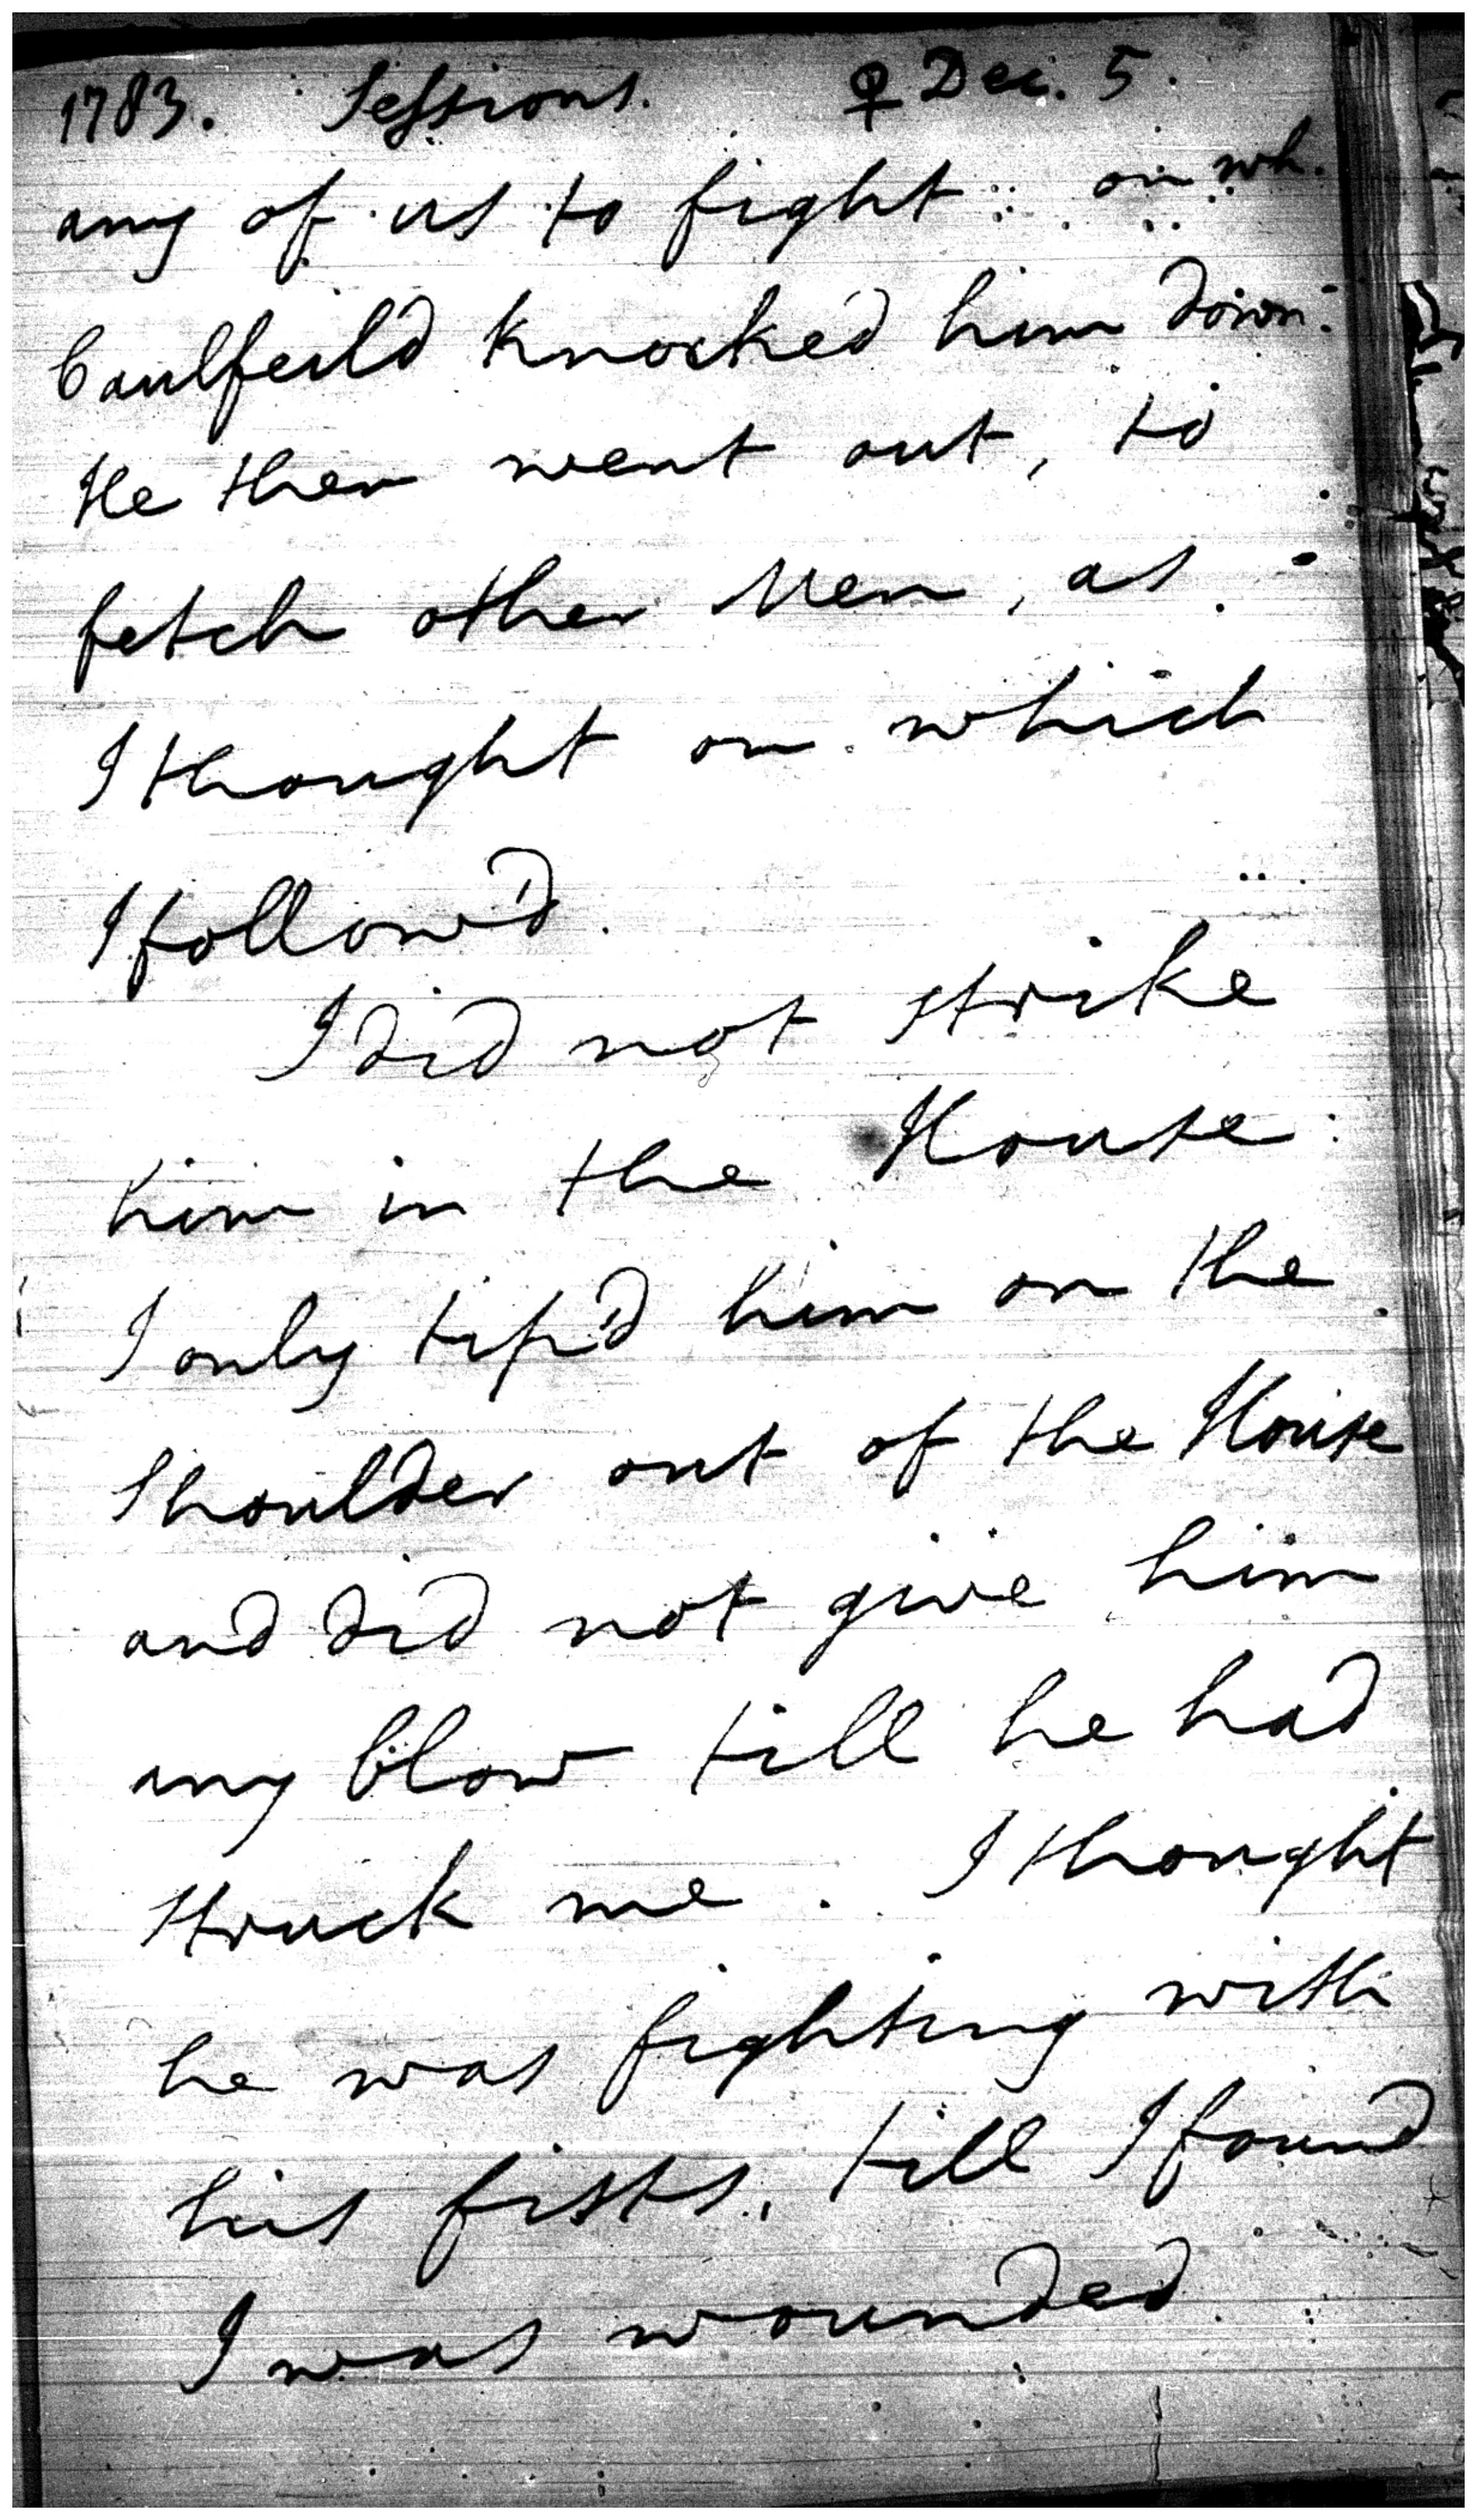 1783. Sessions. ♀ Dec. 5.
any of us to fight: on wh.
Caulfeild knocked him down.
He then went out, to
fetch other Men, as
I thought on which
I follow'd.
I did not strike
him in the House:
I only tip'd him on the
Shoulder out of the House
and did not give him
any blow till he had
Struck me. I thought
he was fighting with
his fists, till I found
I was wounded.